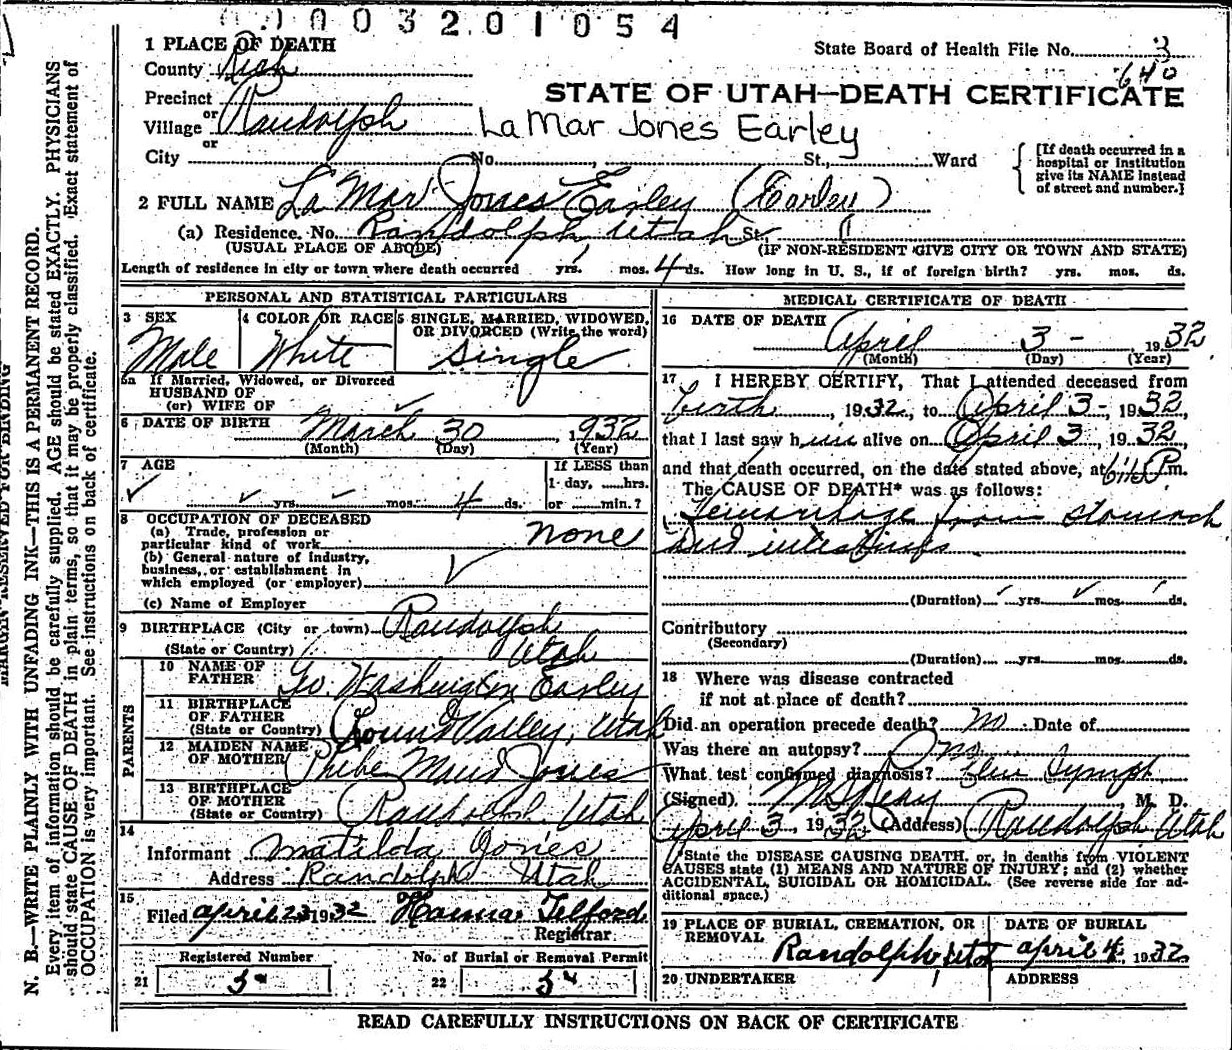 0003201054
1 PLACE OF DEATH
State Board of Health File No. 3
640
County Rich
STATE OF UTAH—DEATH CERTIFICATE
Precinct
or
Village Randolph
LaMar Jones Earley
or
City No. , St., Ward
[If death occurred in a hospital or institution give its NAME instead of street and number.]
2 FULL NAME La Mar Jones Earley (Earley)
(a) Residence. No. Randolph, Utah St,
(USUAL PLACE OF ABODE) (IF NON-RESIDENT GIVE CITY OR TOWN AND STATE)
Length of residence in city or town where death occurred yrs. mos. 4 ds. How long in U. S., if of foreign birth? yrs. mos. ds.
PERSONAL AND STATISTICAL PARTICULARS
3 SEX
Male
4 COLOR OR RACE
White
5 SINGLE, MARRIED, WIDOWED, OR DIVORCED (Write the word)
Single
5a If Married, Widowed, or Divorced
HUSBAND OF
(or) WIFE OF
6 DATE OF BIRTH March 30, 1932
(Month) (Day) (Year)
7 AGE
yrs. mos. 4 ds.
If LESS than
1 day, hrs.
or min.?
8 OCCUPATION OF DECEASED
(a) Trade, profession or
particular kind of work none
(b) General nature of industry,
business, or establishment in
which employed (or employer)
(c) Name of Employer
9 BIRTHPLACE (City or town) Randolph
(State or Country) Utah
PARENTS
10 NAME OF
FATHER Geo. Washington Earley
11 BIRTHPLACE
OF FATHER
(State or Country) Round Valley, Utah
12 MAIDEN NAME
OF MOTHER Phebe Maud Jones
13 BIRTHPLACE
OF MOTHER
(State or Country) Randolph Utah
14
Informant Matilda Jones
Address Randolph Utah
15
Filed april 23 1932 Telford
Registrar
Registered Number No. of Burial or Removal Permit
21 3 22 3
MEDICAL CERTIFICATE OF DEATH
16 DATE OF DEATH
April 3 - , 1932
(Month) (Day) (Year)
17 I HEREBY CERTIFY, That I attended deceased from
birth , 1932, to April 3 - , 1932,
that I last saw him alive on April 3 , 1932,
and that death occurred, on the date stated above, at P.m.
The CAUSE OF DEATH* was as follows:
Hemorrhage from stomach
and intestines
(Duration) yrs. mos. ds.
Contributory
(Secondary)
(Duration) yrs. mos. ds.
18 Where was disease contracted
if not at place of death?
Did an operation precede death? no Date of
Was there an autopsy? no
What test confirmed diagnosis?
(Signed) , M. D.
April 3, 1932 (Address) Randolph Utah
*State the DISEASE CAUSING DEATH, or, in deaths from VIOLENT
CAUSES state (1) MEANS AND NATURE OF INJURY; and (2) whether
ACCIDENTAL, SUICIDAL OR HOMICIDAL. (See reverse side for additional space.)
19 PLACE OF BURIAL, CREMATION, OR
REMOVAL
Randolph, Utah
DATE OF BURIAL
april 4, 1932
20 UNDERTAKER ADDRESS
READ CAREFULLY INSTRUCTIONS ON BACK OF CERTIFICATE
MARGIN RESERVED FOR BINDING
N. B.—WRITE PLAINLY WITH UNFADING INK—THIS IS A PERMANENT RECORD.
Every item of information should be carefully supplied. AGE should be stated EXACTLY. PHYSICIANS
should state CAUSE OF DEATH in plain terms, so that it may be properly classified. Exact statement of
OCCUPATION is very important. See instructions on back of certificate.